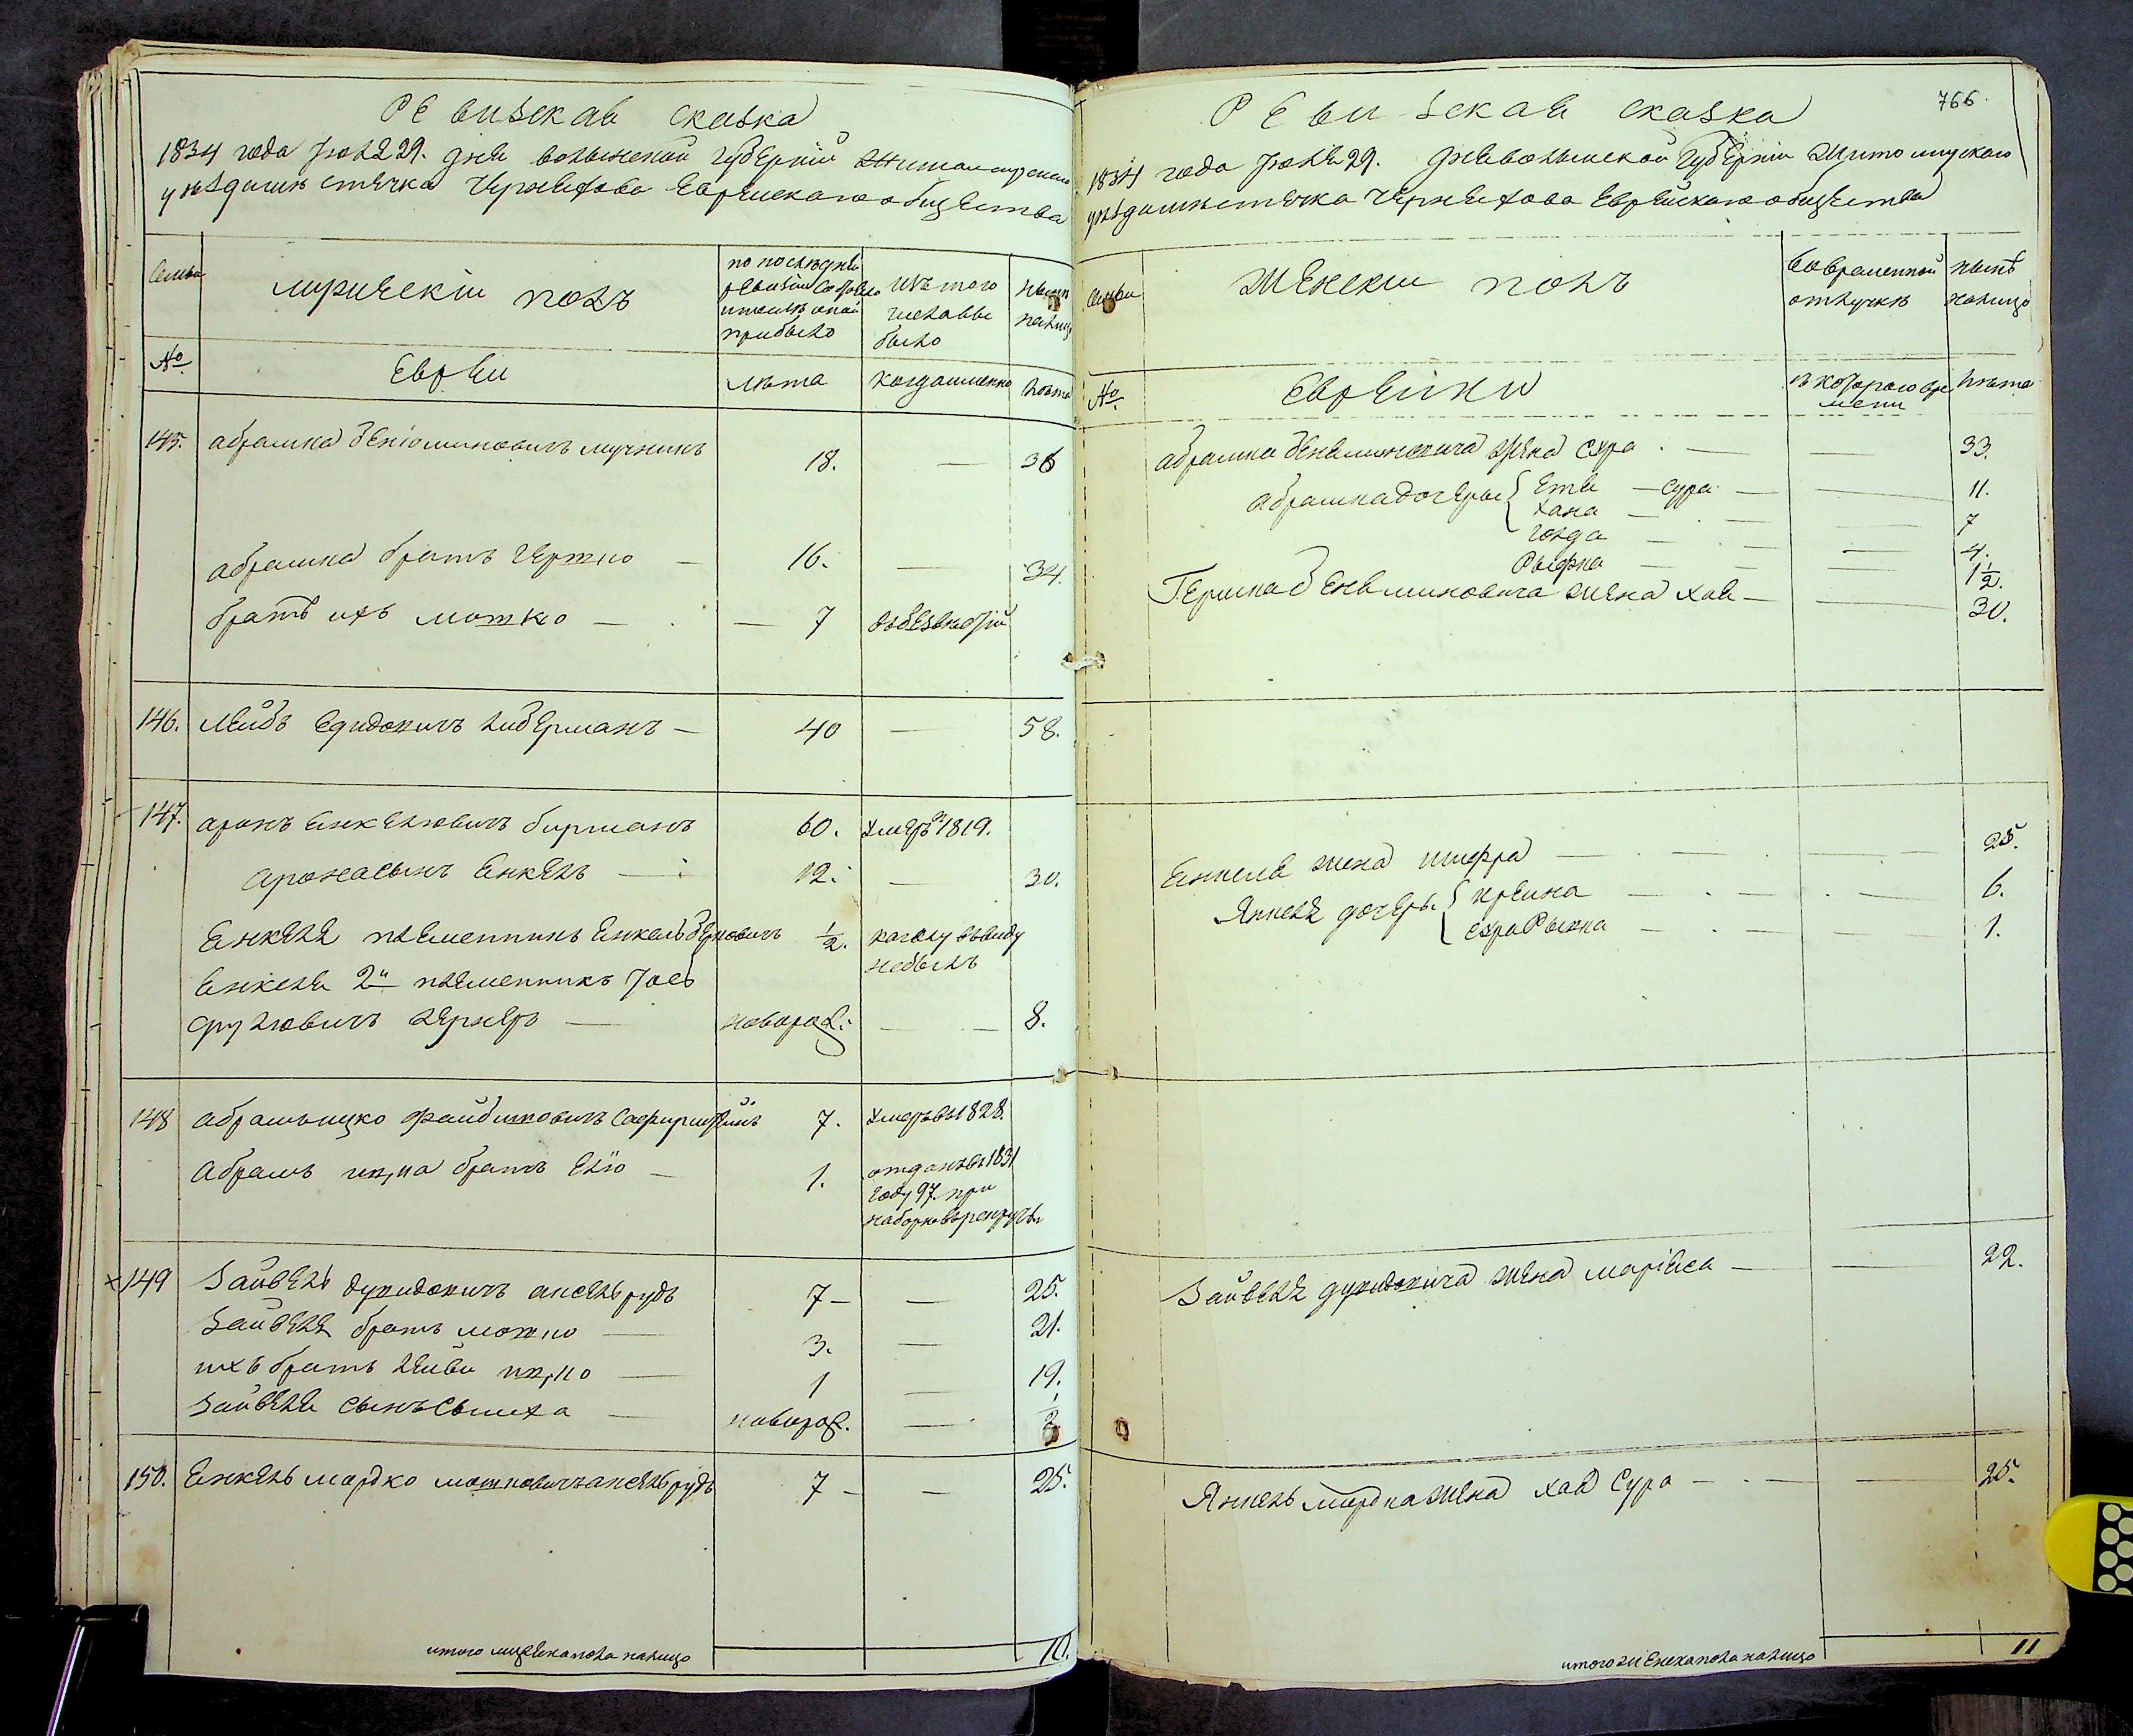 Ревизская сказка
1834 года Июля 29. дня волынской губернии житомирского
уезда мистечка Черняхова Еврейского общества
Семьи
мужеский полъ
по последней ревизии состояло и после оной прибыло
изъ того числа выбыло
ныне на лицо
№
Евреи
лета
когда именно
лета
145. абрамка бениоминовичъ мучникъ 18. — 36
абрамка братъ Гершко — 16. — 34.
братъ ихъ мошко — 7
146. Лейбъ Едидовичъ либерманъ — 40 — 58.
147. аронъ Енкелювичъ бирманъ 60. умеръ въ 1819.
арона сынъ Енкель — 12. — 30.
Енкеля племенникъ Енкель Берковичъ 1/2.
небылъ
Енкеля 2й племенникъ Иось
Срулювичъ лернеръ — новорож. — 8.
148 абрамъ ицко Файбишовичъ 7. умеръ въ 1828.
Абрамъ ицка братъ Елio — 1. отданъ въ 1831
году 97. при
наборе в рекруты
149 Зайвель дувидовичъ аксельрудъ 7 — — 25.
Зайвеля братъ мошко — 3. — 21.
ихъ братъ Лейба ицко — 1 — 19.
Зайвеля сынъ Симха — новорож. — 1/2
150. Енкель мордко мошковичъ аксельрудъ 7 — — 25.
итого мужеска пола налицо 10.
766.
Ревизская сказка
1834 года Июля 29. дня волынской губернии Житомирского
уезда мистечка Черняхова Еврейского общества
Семьи
Женский полъ
во временной отлучке
ныне налицо
№
Еврейки
съ которого времени
лета
абрамка бениминовича жена Сура — — 33.
абрамка дочеры Етя — Сура — — 11.
Хана — — 7
Голда — — 4.
Рыфка — — 1 1/2.
Гершка бениминовича жена Хая — — 30.
Енкеля жена шифра — — 25.
Янкеля дочеры Крейна — — 6.
Сура Рыкла — — 1.
Зайвеля дувидовича жена маріяса — — 22.
Янкель мордка жена хая Сура — — 25.
итого женска пола налицо 11